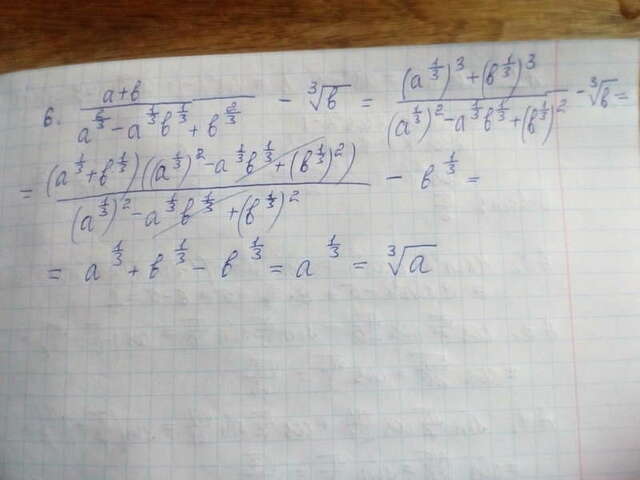 6. \frac{a+b}{a^{\frac{2}{3}} - a^{\frac{1}{3}}b^{\frac{1}{3}} + b^{\frac{2}{3}}} - \sqrt[3]{b} = \frac{(a^{\frac{1}{3}})^3 + (b^{\frac{1}{3}})^3}{(a^{\frac{1}{3}})^2 - a^{\frac{1}{3}}b^{\frac{1}{3}} + (b^{\frac{1}{3}})^2} - \sqrt[3]{b} =
= \frac{(a^{\frac{1}{3}} + b^{\frac{1}{3}})((a^{\frac{1}{3}})^2 - a^{\frac{1}{3}}b^{\frac{1}{3}} + (b^{\frac{1}{3}})^2)}{(a^{\frac{1}{3}})^2 - a^{\frac{1}{3}}b^{\frac{1}{3}} + (b^{\frac{1}{3}})^2} - b^{\frac{1}{3}} =
= a^{\frac{1}{3}} + b^{\frac{1}{3}} - b^{\frac{1}{3}} = a^{\frac{1}{3}} = \sqrt[3]{a}